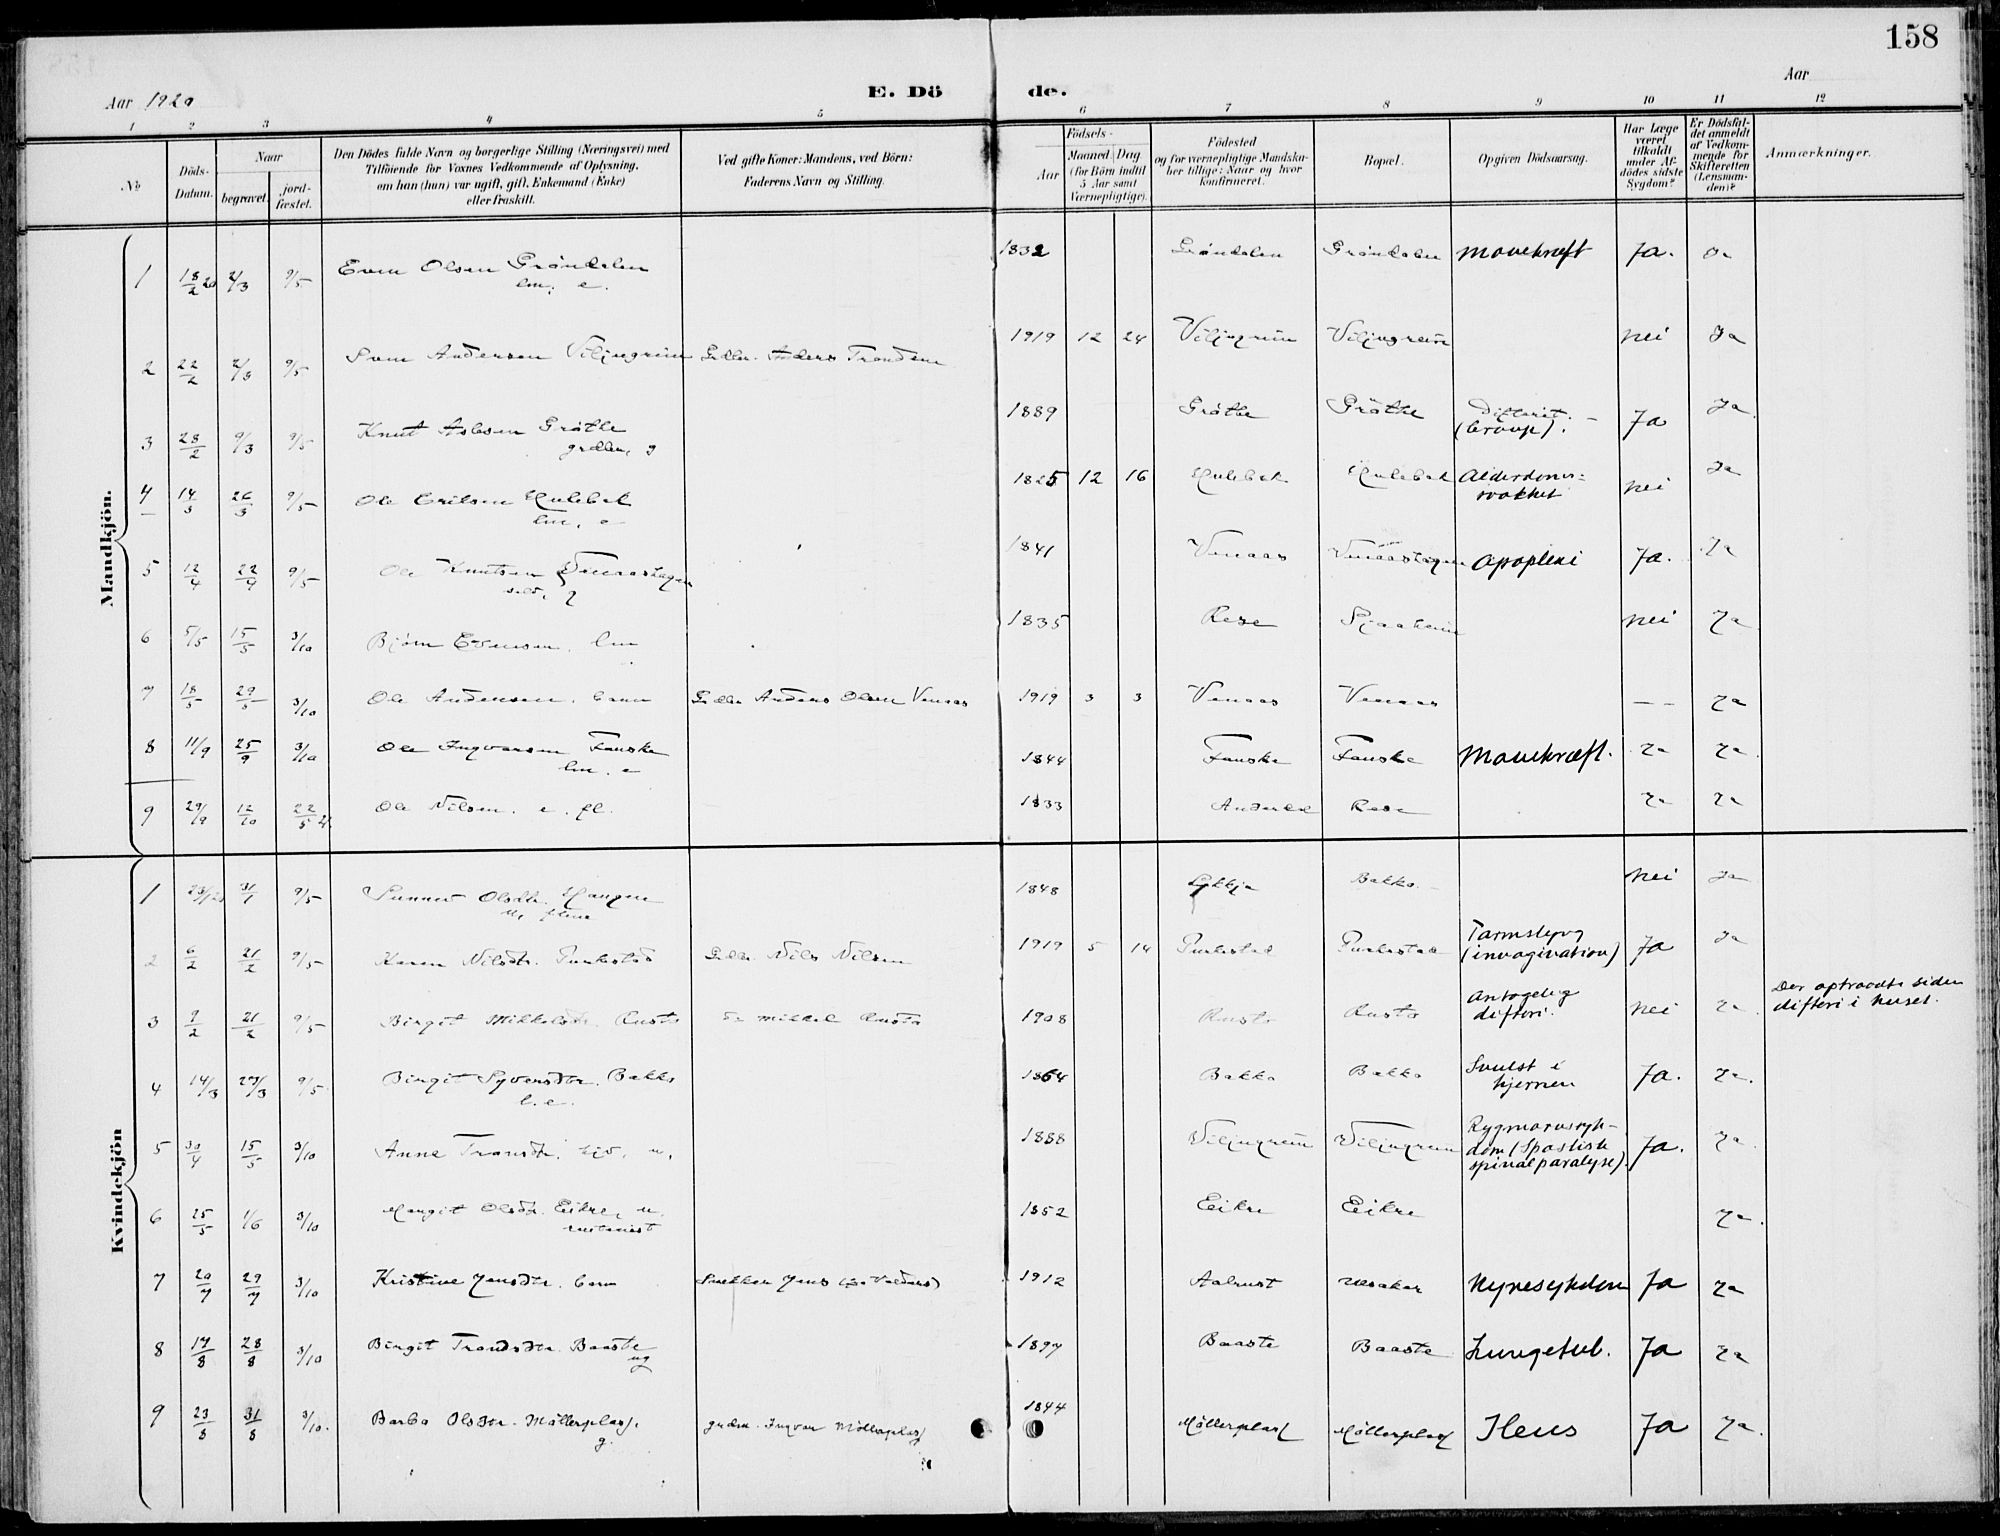 158
Aar 1920
E. Dö de.
Aar
1 2 3 4 5 6 7 8 9 10 11 12
No
Döds-Datum.
Naar
begravet.
jord-fæstet.
Den Dödes fulde Navn og borgerlige Stilling (Næringsvei) med
Tilföiende for Voxnes Vedkommende af Oplysning,
om han (hun) var ugift, gift, Enkemand (Enke)
eller fraskilt.
Ved gifte Koner: Mandens, ved Börn:
Faderens Navn og Stilling.
Födsels-
Aar
Maaned Dag
(for Börn indtil
5 Aar samt
Værnepligtige).
Födested
og for værnepligtige Mandska-
ber tillige: Naar og hvor
konfirmeret.
Bopæl.
Opgiven Dödsaarsag.
Har Læge
været
tilkaldt
under Af-
dödes sidste
Sygdom?
Er Dödsfal-
det anmeldt
af Vedkom-
mende for
Skifteretten
(Lensman-
den)?
Anmærkninger.
Mandkjön.
1 18/2 20 2/3 9/5 Even Olsen Gröndalen 1832 Gröndalen Gröndalen Mavekræft Ja. Ja
lm, e.
2 22/2 2/3 9/5 Sven Andersen Viljugrein Gdbr. Anders Trondsen 1919 12 24 Viljugrein Viljugrein nei Ja
3 28/2 9/3 9/5 Knut Aslesen Gröthe 1889 Gröthe Gröthe Difterit. – Ja Ja.
grdbr, g (Croup).
4 14/3 26/3 9/5 Ole Eriksen Hulebak 1825 12 16 Hulebak Hulebak Alderdoms= nei Ja
lm, e svakhet
5 12/4 22/4 9/5 Ole Knutsen Venaashagen 1841 Venaas Venaashagen Apoplexi Ja. Ja
6 5/5 15/5 3/10 Björn Evensen. lm 1835 Rese Sjaaheim nei Ja
7 18/5 29/5 3/10 Ole Andersen. barn Gdbr Anders Olsen Venaas 1919 3 3 Venaas Venaas — — Ja
8 11/9 25/9 3/10 Ole Ingvarsen Fauske 1844 Fauske Fauske Mavekræft. Ja Ja.
lm. e
9 29/9 12/10 22/5 21. Ole Nilsen. e. fl. 1833 Rese Ja Ja
Kvindekjön
1 31/1 9/5 Sunnev Olsdtr. Haugen 1848 Lykkja Bakko. nei Ja
2 6/2 21/2 9/5 Karen Nilsdtr. Turkestad Gdbr. Nils Nilsen 1919 5 14 Turkestad Turkestad Tarmslyng Ja Ja
(invagination)
3 9/2 21/2 9/5 Birgit Mikkelsdtr. Rusto do Mikkel Rusto 1908 Rusto Rusto Antagelig nei Ja. Der optraadte siden
difteri. difteri i huset.
4 14/3 27/3 9/5 Birgit Syversdtr. Bakko 1864 Bakko Bakko Svulst i Ja. Ja.
l. e. hjernen
5 30/4 15/5 3/10 Anne Tronsdtr. u, 1888 Viljugrein Viljugrein Rygmarvssyk- Ja. Ja.
dom (Spastisk
spinalparalyse).
6 25/5 1/6 3/10 Margit Olsdtr. Eikre, u. 1852 Eikre Eikre Ja.
7 20/7 29/7 3/10 Kristine Jensdtr. barn Snekker Jens (Valders) 1912 Aalrust Nyresykdom Ja Ja
8 17/8 28/8 3/10 Birgit Trondsdtr. Baaste 1897 Baaste Baaste Lungetub. Ja Ja
ug
9 23/8 31/8 3/10. Barbo Olsdtr. Möllerplass. grdm. Ingvar Möllerplass 1844 Möllerplass Möllerplass Ileus Ja Ja.
g.